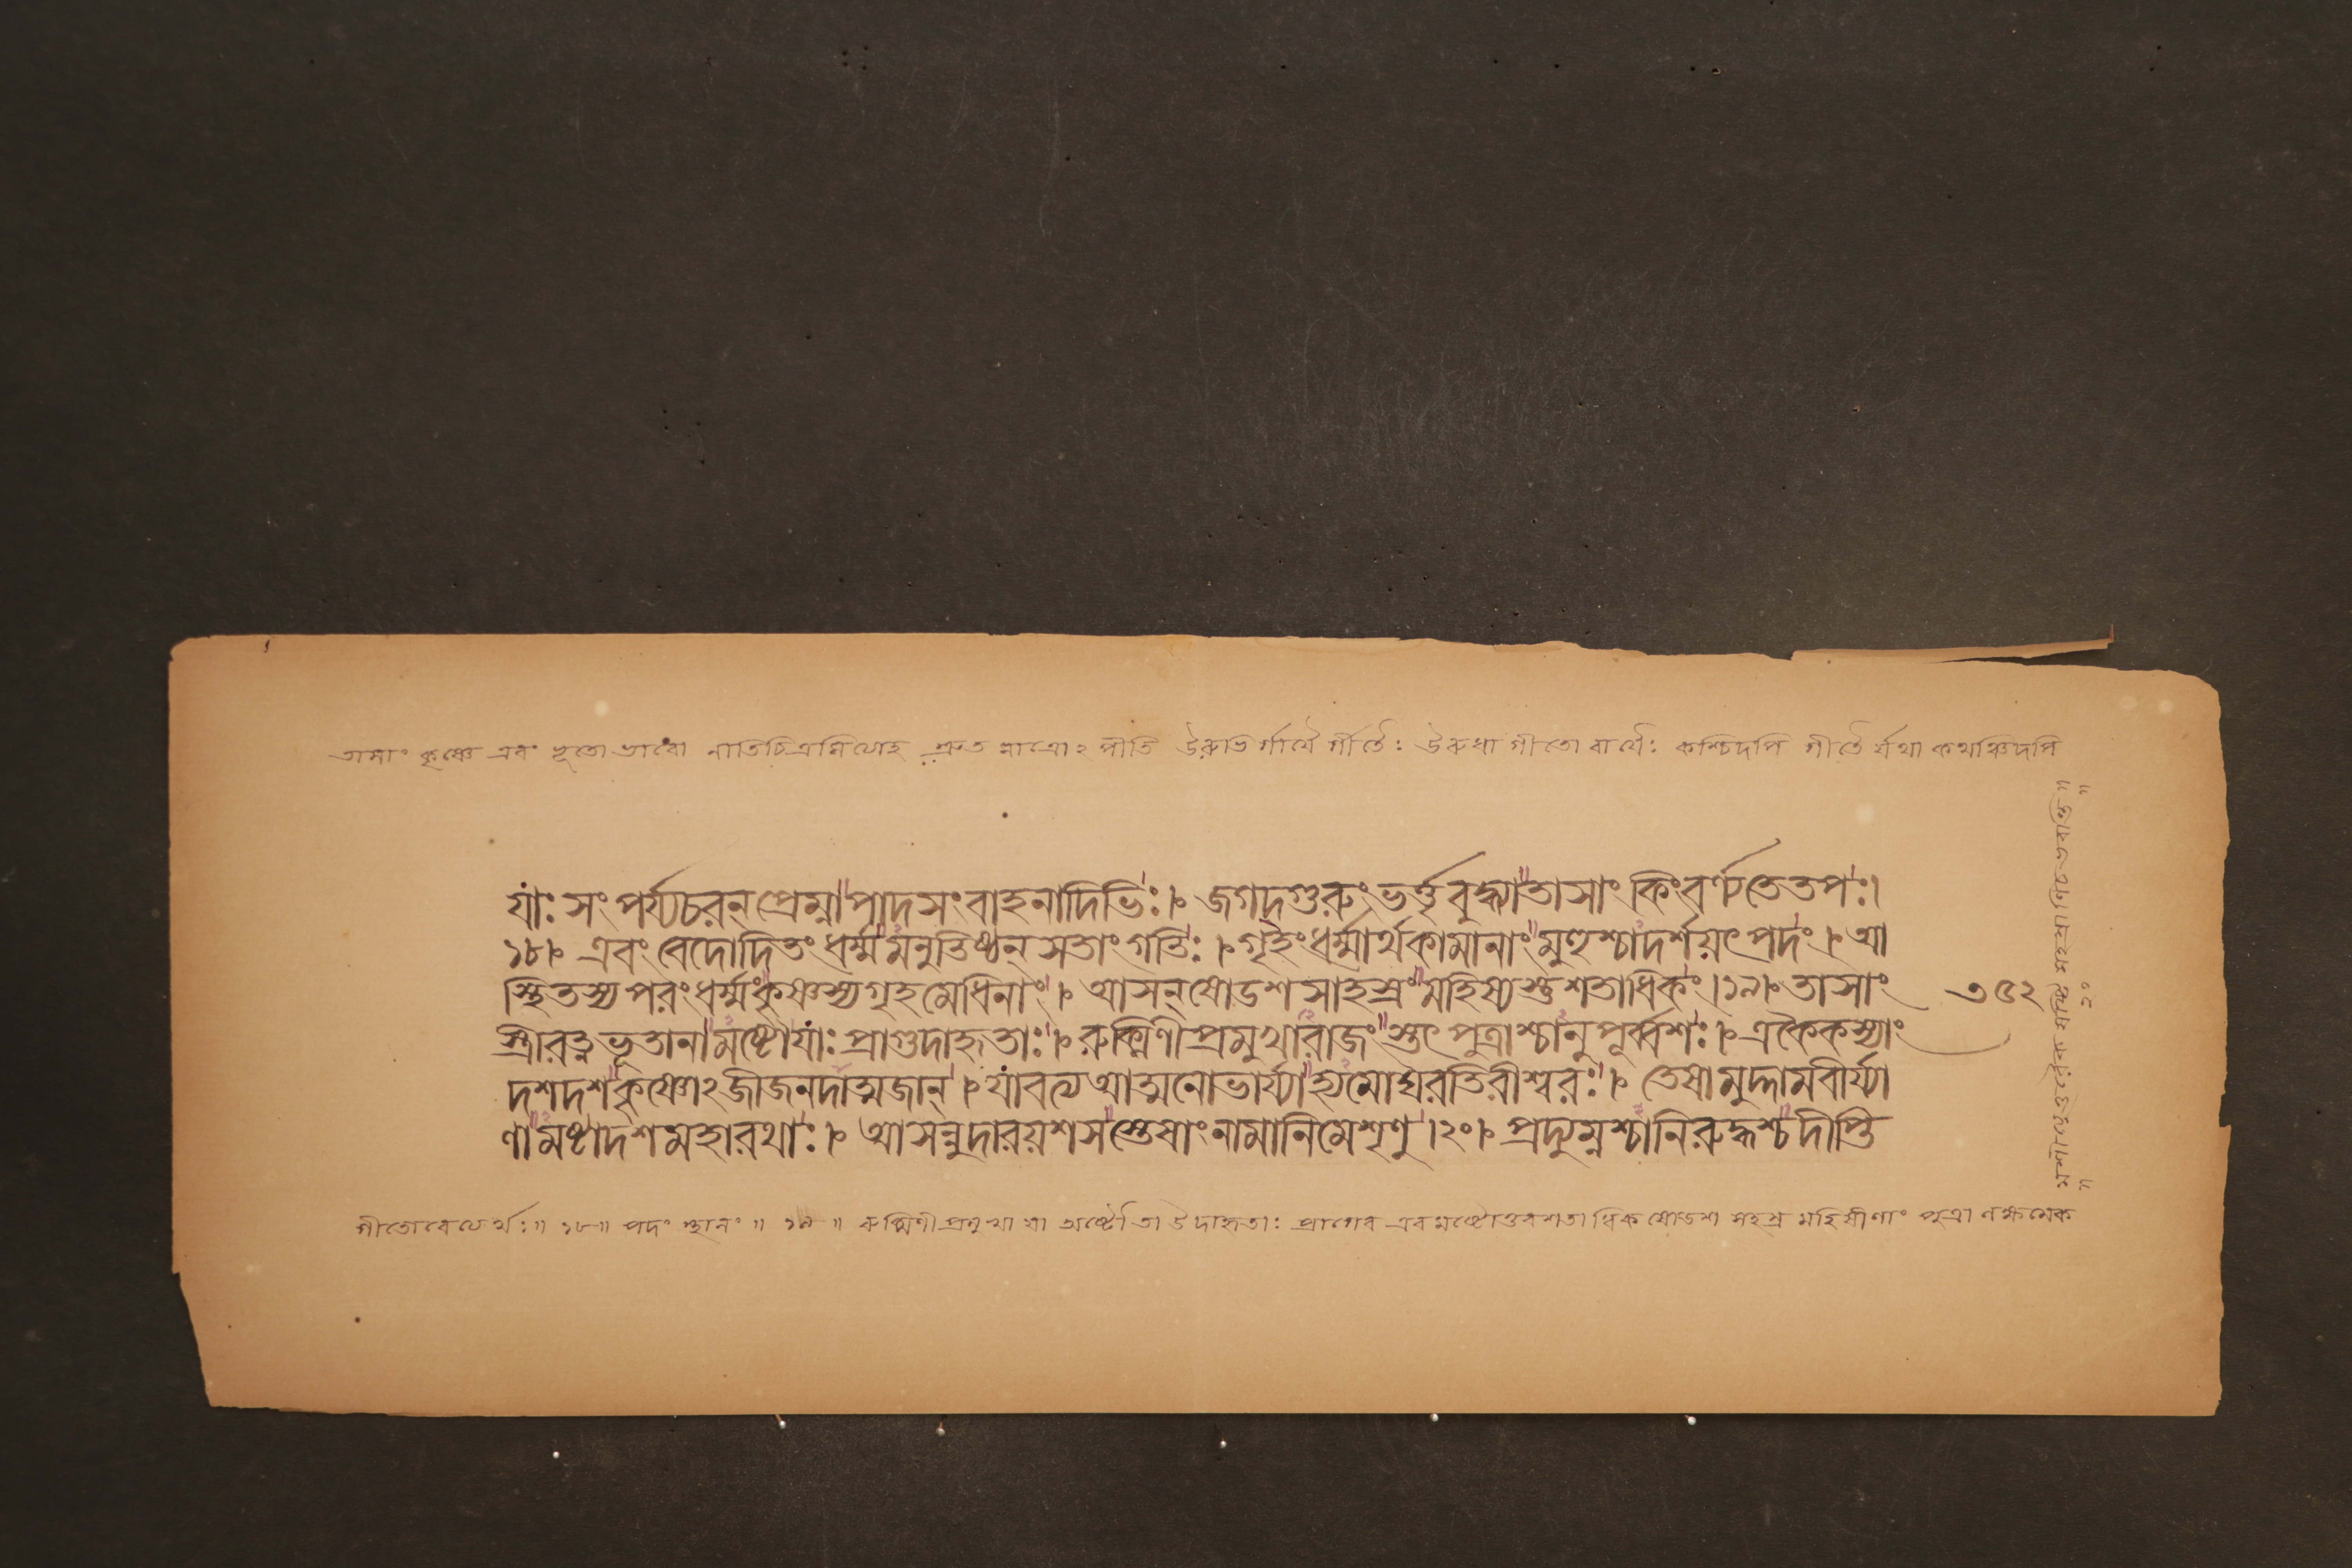 তাসাং কৃষ্ণে এবং ভূতো ভাবো নাতিচিত্রমিত্যাহ শ্রুত মাত্রোঽপীতি উরুভির্গায়ৈর্গীতৈঃ উরুধা গীতো বার্থৈঃ কশ্চিদপি গীতৈ র্যথা কথঞ্চিদপি
যাঃ সংপর্য্যচরন্ প্রেম্না পাদসংবাহনাদিভিঃ। জগদ্গুরুং ভর্ত্তৃবুদ্ধ্যা তাসাং কিং বর্ণ্যতে তপঃ।
১৮। এবং বেদোদিতং ধর্ম্মমনুতিষ্ঠন্ সতাং গতিঃ। গৃহং ধর্ম্মার্থকামানাং মুহুশ্চাদর্শয়ৎ পদং। আ
স্থিতস্য পরং ধর্ম্মং কৃষ্ণস্য গৃহমেধিনাং। আসন্ ষোডশসাহস্রং মহিষ্যশ্চ শতাধিকং।১৯। তাসাং
স্ত্রীরত্নভূতানামষ্টৌ যাঃ প্রাগুদাহৃতাঃ। রুক্মিণীপ্রমুখা রাজংস্তৎপুত্রাশ্চানুপূর্ব্বশঃ। একৈকস্যাং
দশ দশ কৃষ্ণোঽজীজনদাত্মজান্। যাবত্য আত্মনো ভার্য্যা হ্যমোঘরতিরীশ্বরঃ। তেষামুদ্দামবীর্য্যা
ণামষ্টাদশ মহারথাঃ। আসন্নুদারযশসস্তেষাং নামানি মে শৃণু।২০। প্রদ্যুম্নশ্চানিরুদ্ধশ্চ দীপ্তি
৩৫২
গীতোবেত্যর্থঃ॥ ১৮॥ পদং স্থানং॥ ১৯॥ রুক্মিণীপ্রমুখা যা অষ্টৌ তা উদাহৃতাঃ প্রাগেব এবমষ্টোত্তরশতাধিক ষোডশ সহস্র মহিষীণাং পুত্রাণ লক্ষমেক
॥ ২০ ॥